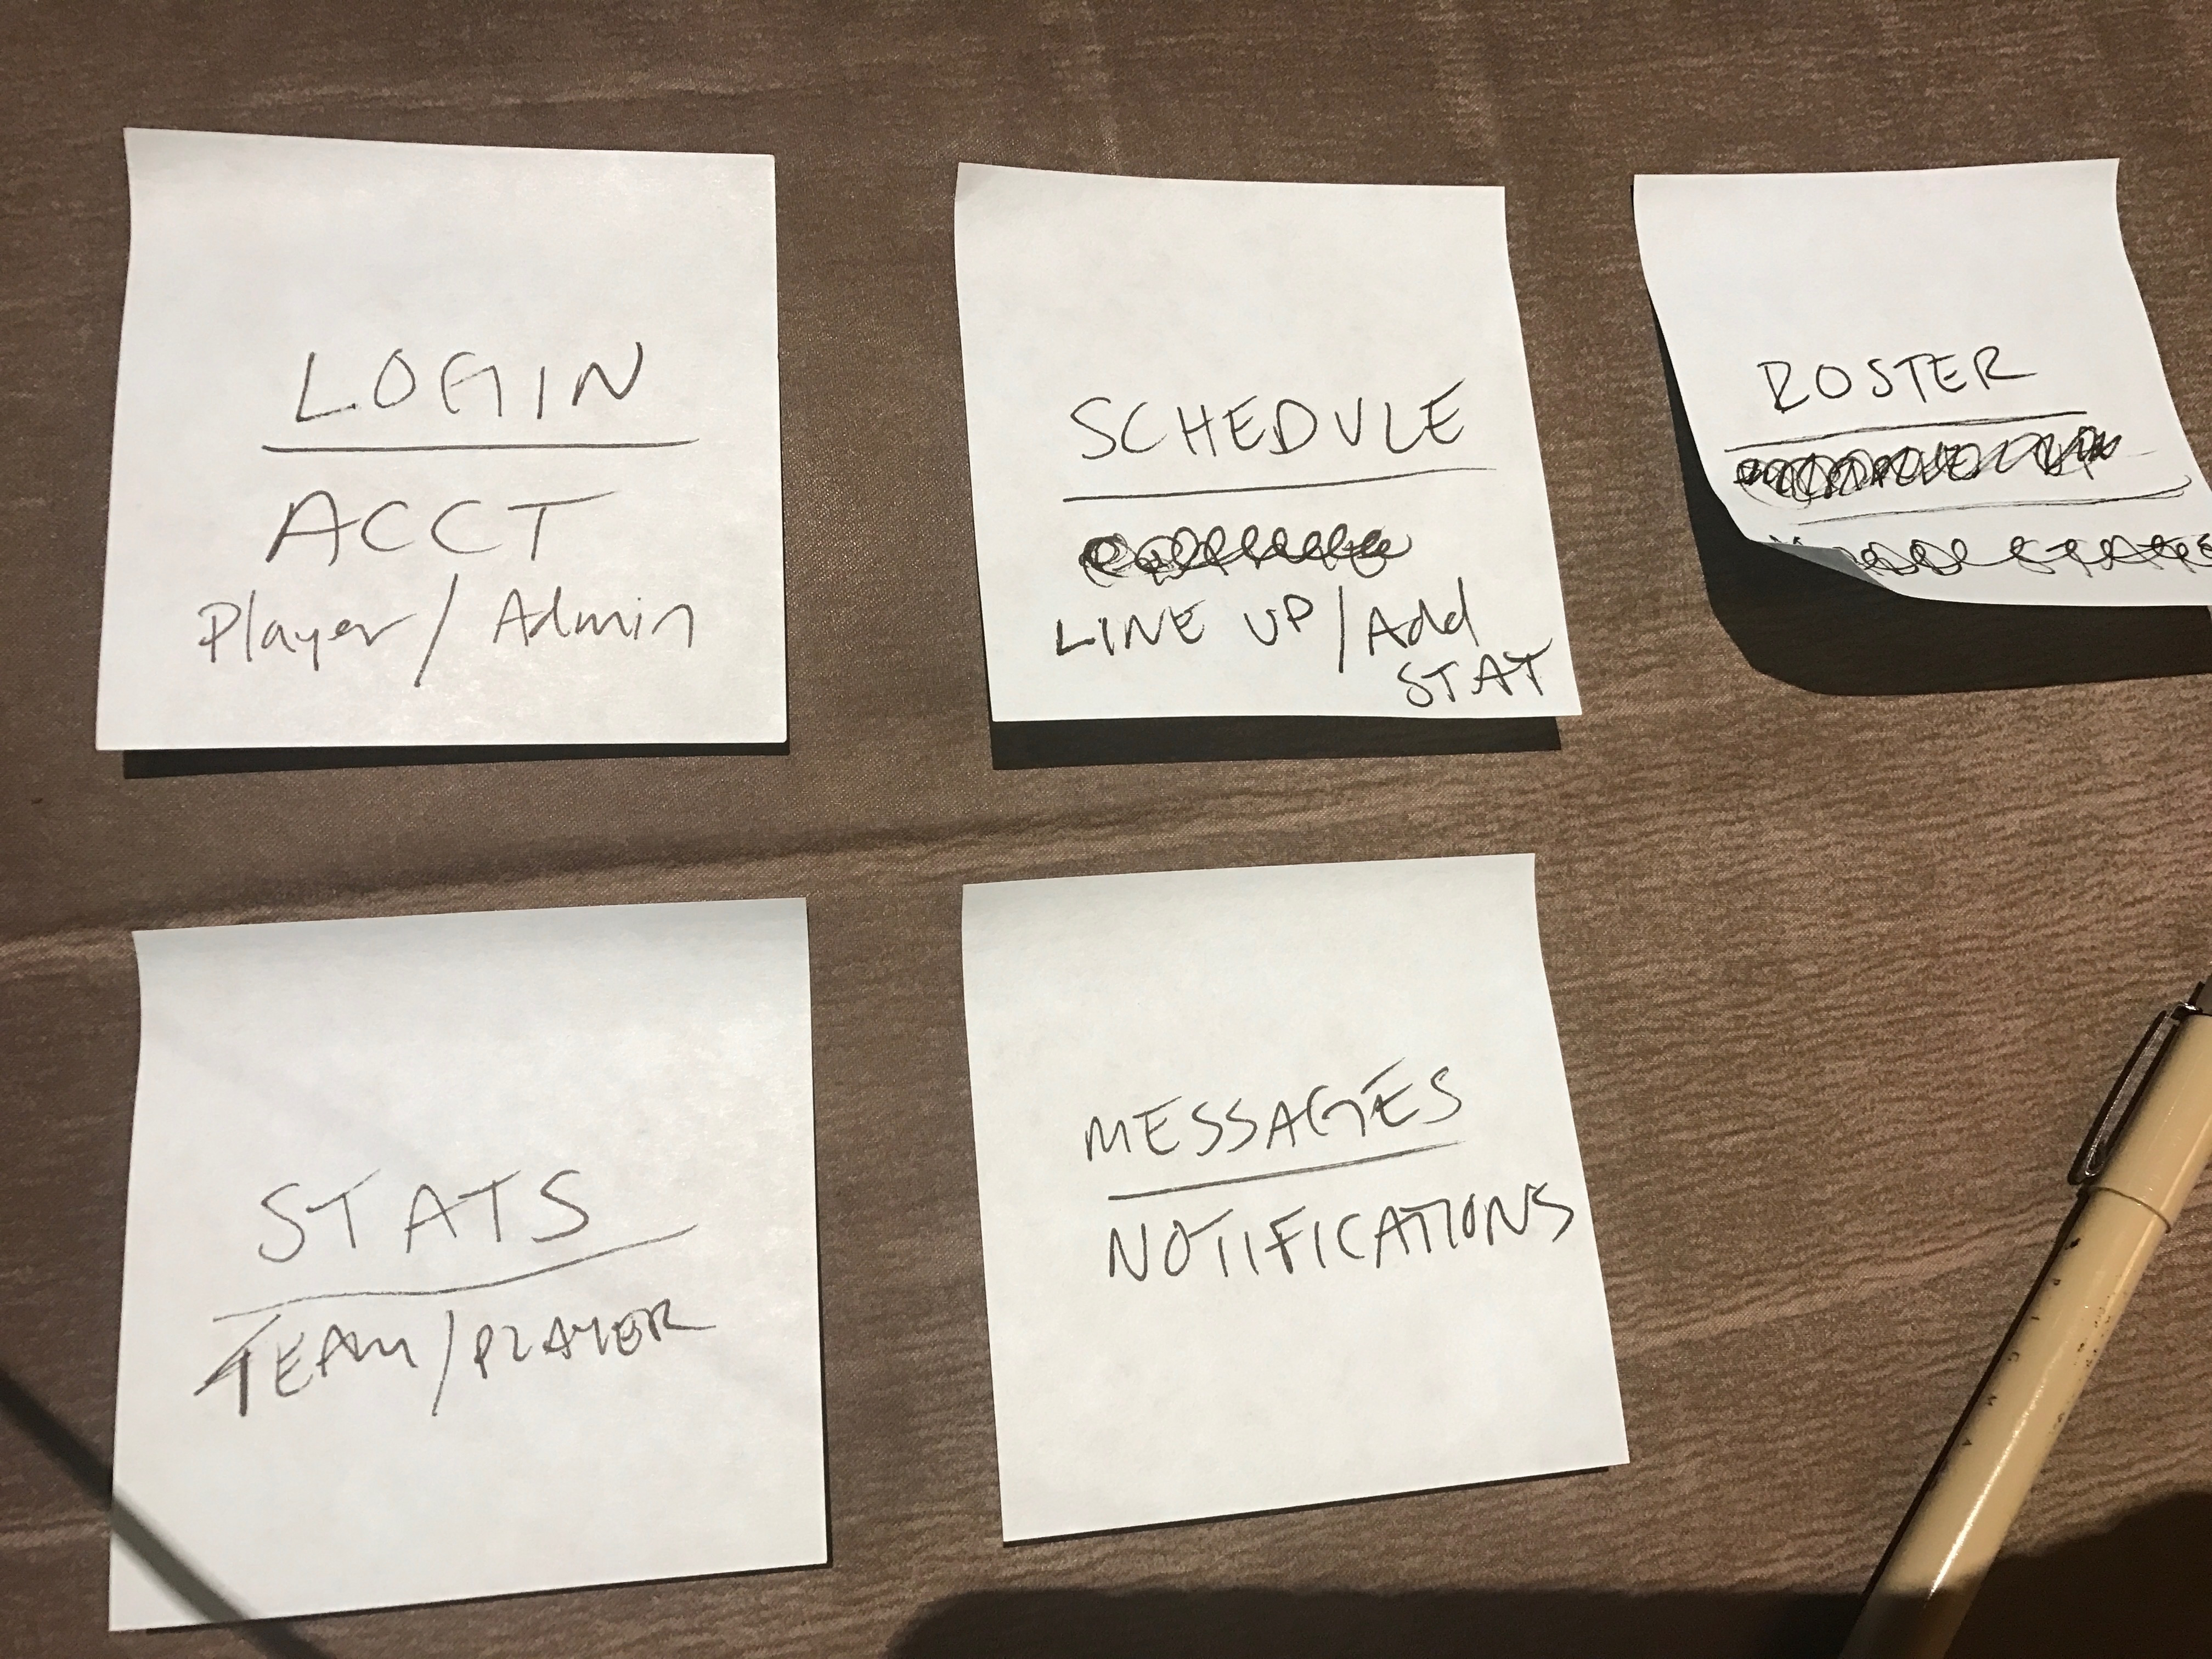 LOGIN
ACCT
Player/Admin
SCHEDULE
LINE UP/Add
STAT
ROSTER
STATS
TEAM/PLAYER
MESSAGES
NOTIFICATIONS
PIGMA